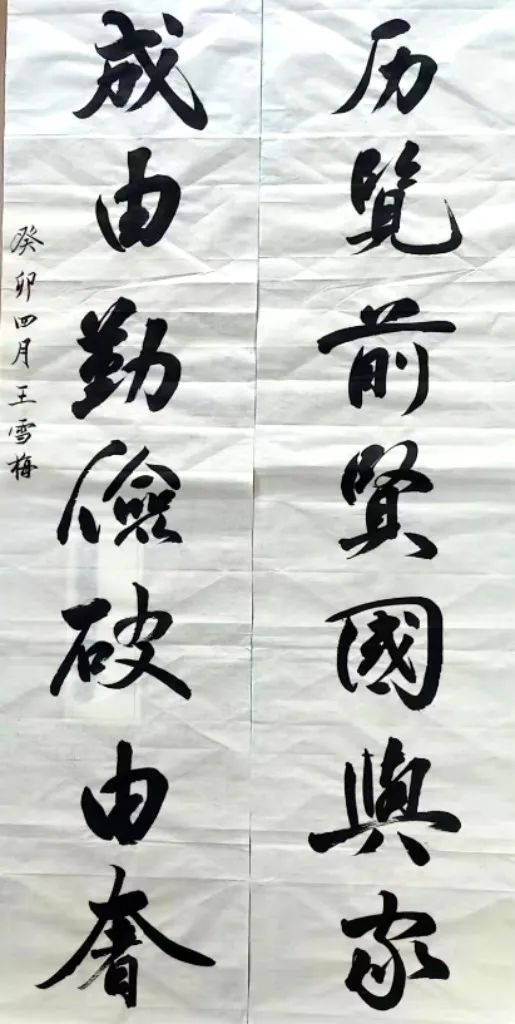 历覽前賢國與家
成由勤儉破由奢
癸卯四月王雪梅